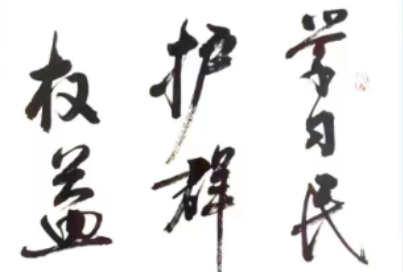 学习民
护群
权益